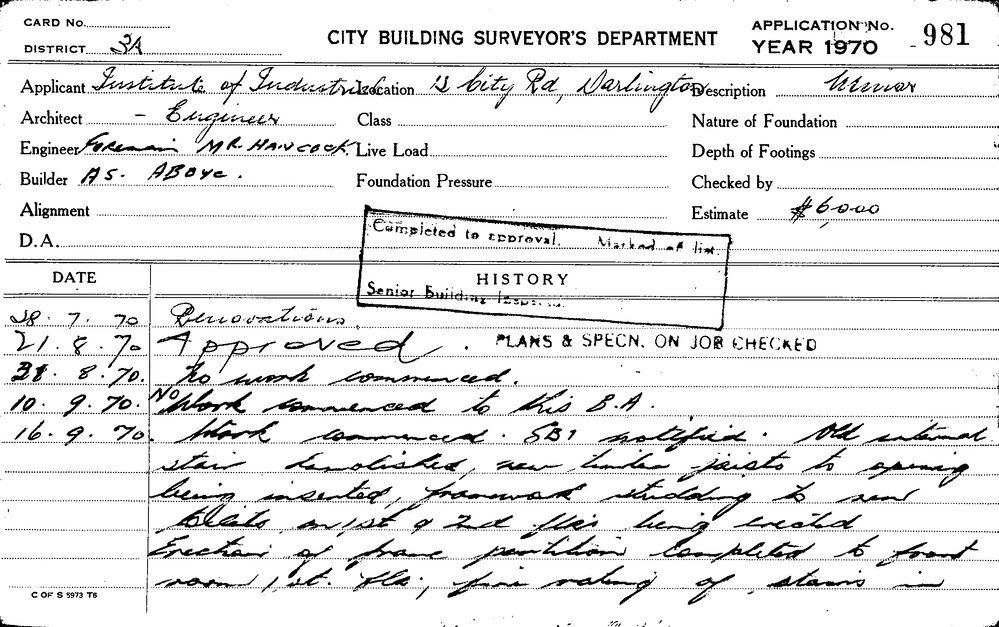 CARD No.
DISTRICT 3A
CITY BUILDING SURVEYOR'S DEPARTMENT
APPLICATION No. 981
YEAR 1970
Applicant Institute of Industrial Location 13 City Rd, Darlington Description Minor
Architect - Engineer Class Nature of Foundation
Engineer Foreman MR. HANCOCK. Live Load Depth of Footings
Builder AS. ABOVE. Foundation Pressure Checked by
Alignment Estimate $6,000
D.A.
Completed to approval. Marked off list.
Senior Building Inspector
DATE HISTORY
28. 7. 70 Renovations.
21. 8. 70 Approved. PLANS & SPECN. ON JOB CHECKED
31. 8. 70. No work commenced.
10. 9. 70. No Work commenced to this B.A.
16. 9. 70. Work commenced. SBI notified. Old internal
stair demolished, new timber joists to opening
being inserted, framework studding to new
toilets on 1st & 2nd flrs being erected
Erection of frame partition completed to front
room 1st. flr; fire rating of stairs in
C OF S 5973 T6